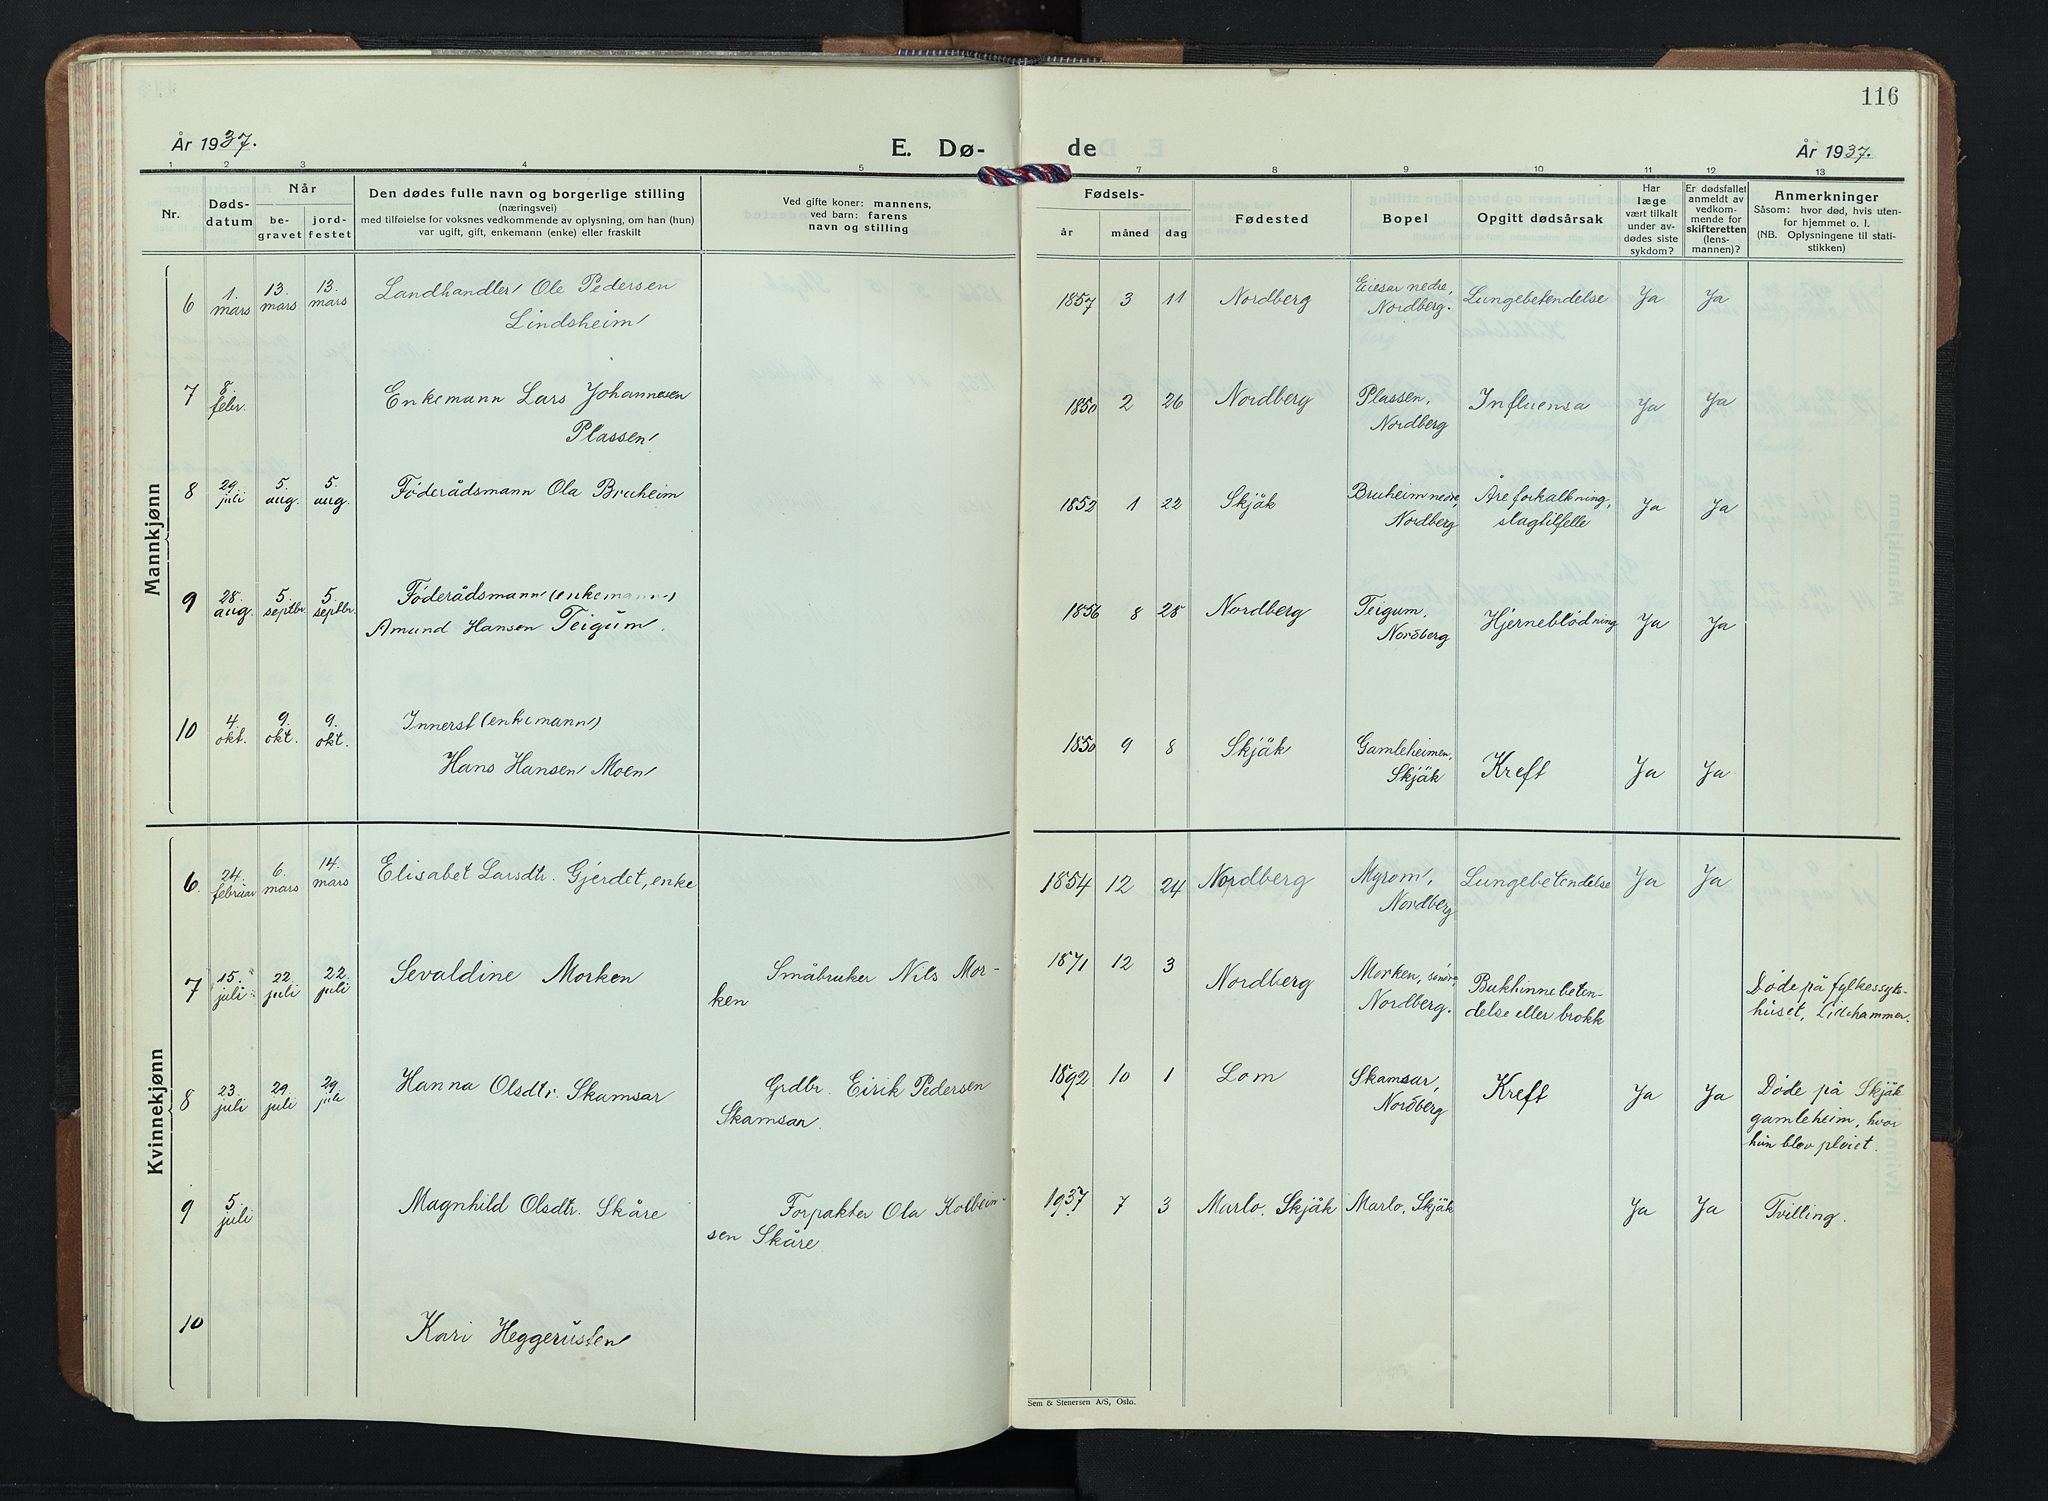 116
År 1937.
E. Dø-
de
År 1937.
1 2 3 4 5 7 8 9 10 11 12 13
Nr.
Døds-
datum
Når
be-
gravet
jord-
festet
Den dødes fulle navn og borgerlige stilling
(næringsvei)
med tilføielse for voksnes vedkommende av oplysning, om han (hun)
var ugift, gift, enkemann (enke) eller fraskilt
Ved gifte koner: mannens,
ved barn: farens
navn og stilling
Fødsels-
år
måned
dag
Fødested
Bopel
Opgitt dødsårsak
Har
læge
vært tilkalt
under av-
dødes siste
sykdom?
Er dødsfallet
anmeldt av
vedkom-
mende for
skifteretten
(lens-
mannen)?
Anmerkninger
Såsom: hvor død, hvis uten-
for hjemmet o. l.
(NB. Oplysningene til stati-
stikken)
Mannkjønn
6 1. mars 13. mars 13. mars Landhandler Ole Pedersen
Lindsheim
1857 3 11 Nordberg Eiesar nedre,
Nordberg. Lungebetendelse Ja Ja
7 8. febr. Enkemann Lars Johannesen
Plassen
1850 2 26 Nordberg Plassen,
Nordberg Influensa Ja Ja
8 29. juli 5. aug. 5. aug. Føderådsmann Ola Bruheim
1852 1 22 Skjåk Bruheim nedre,
Nordberg Åreforkalkning,
slagtilfelle Ja Ja
9 28. aug. 5. septbr. 5. septbr. Føderådsmann (enkemann)
Amund Hansen Teigum.
1856 8 28 Nordberg Teigum,
Nordberg Hjerneblødning Ja Ja
10 4. okt. 9. okt. 9. okt. Innerst (enkemann)
Hans Hansen Moen
1850 9 8 Skjåk Gamleheimen,
Skjåk Kreft Ja Ja
Kvinnekjønn
6. 24. februar 6. mars 14. mars Elisabet Larsdtr. Gjerdet, enke
1854 12 24 Nordberg Myrom,
Nordberg Lungebetendelse Ja Ja
7 15. juli 22. juli 22. juli Sevaldine Morken
Småbruker Nils Mor-
ken
1871 12 3 Nordberg Morken, søndre,
Nordberg. Bukhinnebeten-
delse eller brokk
Døde på fylkessyke-
huset, Lillehammer.
8 23. juli 29. juli 29. juli Hanna Olsdtr. Skamsar
Grdbr. Eirik Pedersen
Skamsar.
1892 10 1 Lom Skamsar,
Nordberg Kreft Ja Ja
Døde på Skjåk
gamleheim, hvor
hun blev pleiet.
9 5. juli Magnhild Olsdtr. Skåre
Forpakter Ola Kolbein-
sen Skåre
1937 7 3 Marlo, Skjåk Marlo, Skjåk Ja Ja Tvilling.
10 Kari Heggerusten
Sem & Stenersen A/S, Oslo.